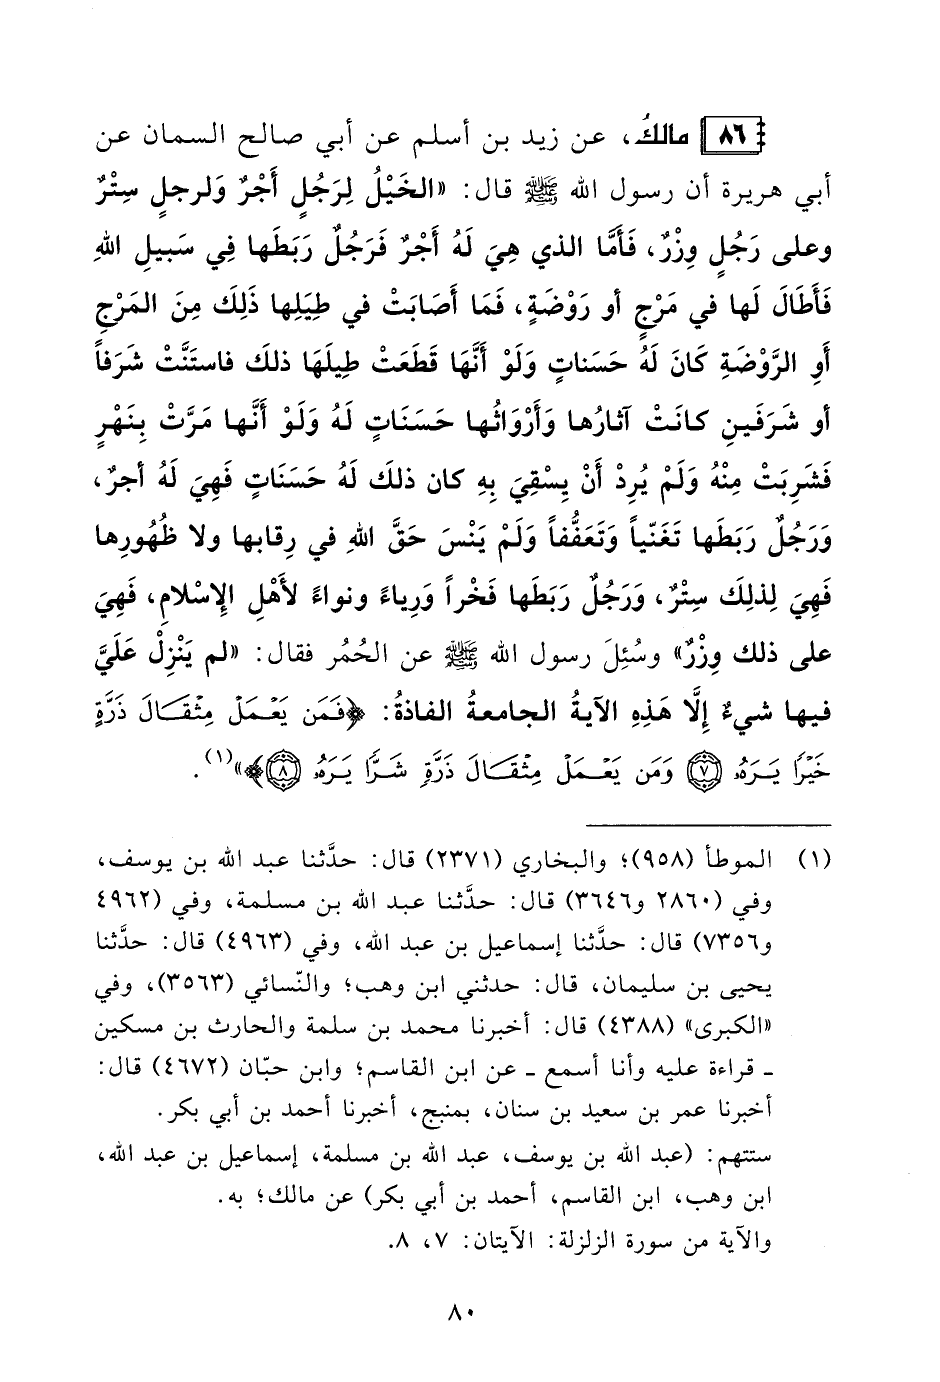 ٨٦ مالكُ، عن زيد بن أسلم عن أبي صالح السمان عن
أبي هريرة أن رسول الله ﷺ قال: «الخَيْلُ لِرَجُلٍ أَجْرٌ وَلرجلٍ سِتْرٌ
وعلى رَجُلٍ وِزْرٌ، فَأَمَّا الذي هِيَ لَهُ أَجْرٌ فَرَجُلٌ رَبَطَها فِي سَبيلِ اللهِ
فَأَطَالَ لَها في مَرْجٍ أو رَوْضَةٍ، فَمَا أَصَابَتْ في طِيَلِها ذَلِكَ مِنَ المَرْجِ
أَوِ الرَّوْضَةِ كَانَ لَهُ حَسَناتٍ وَلَوْ أَنَّهَا قَطَعَتْ طِيلَهَا ذلكَ فاستَنَّتْ شَرَفاً
أو شَرَفَينِ كانَتْ آثارُها وَأَرْوَاثُها حَسَنَاتٍ لَهُ وَلَوْ أنَّها مَرَّتْ بِنَهْرٍ
فَشَرِبَتْ مِنْهُ وَلَمْ يُرِدْ أَنْ يِسْقِيَ بِهِ كان ذلكَ لَهُ حَسَنَاتٍ فَهِيَ لَهُ أجرٌ،
وَرَجُلٌ رَبَطَها تَغَنّياً وَتَعَفُّفاً وَلَمْ يَنْسَ حَقَّ اللهِ في رِقابها ولا ظُهُورِها
فَهِيَ لِذلِكَ سِتْرٌ، وَرَجُلٌ رَبَطَها فَخْراً وَرِياءً ونواءً لأَهْلِ الإِسْلامِ، فَهِيَ
على ذلك وِزْرٌ» وسُئِلَ رسول الله ﷺ عن الحُمُر فقال: «لم يَنْزِلْ عَلَيَّ
فيها شيءٌ إِلَّا هَذِهِ الآيةُ الجامعةُ الفاذةُ: ﴿فَمَن يَعْمَلْ مِثْقَالَ ذَرَّةٍ
خَيْرًا يَرَهُ ٧ وَمَن يَعْمَلْ مِثْقَالَ ذَرَّةٍ شَرًّا يَرَهُ ٨﴾»(١).
(١) الموطأ (٩٥٨)؛ والبخاري (٢٣٧١) قال: حدَّثنا عبد الله بن يوسف،
وفي (٢٨٦٠ و٣٦٤٦) قال: حدَّثنا عبد الله بن مسلمة، وفي (٤٩٦٢
و٧٣٥٦) قال: حدَّثنا إسماعيل بن عبد الله، وفي (٤٩٦٣) قال: حدَّثنا
يحيى بن سليمان، قال: حدثني ابن وهب؛ والنّسائي (٣٥٦٣)، وفي
«الكبرى» (٤٣٨٨) قال: أخبرنا محمد بن سلمة والحارث بن مسكين
ـ قراءة عليه وأنا أسمع ـ عن ابن القاسم؛ وابن حبّان (٤٦٧٢) قال:
أخبرنا عمر بن سعيد بن سنان، بمنبج، أخبرنا أحمد بن أبي بكر.
ستتهم: (عبد الله بن يوسف، عبد الله بن مسلمة، إسماعيل بن عبد الله،
ابن وهب، ابن القاسم، أحمد بن أبي بكر) عن مالك؛ به.
والآية من سورة الزلزلة: الآيتان: ٧، ٨.
٨٠